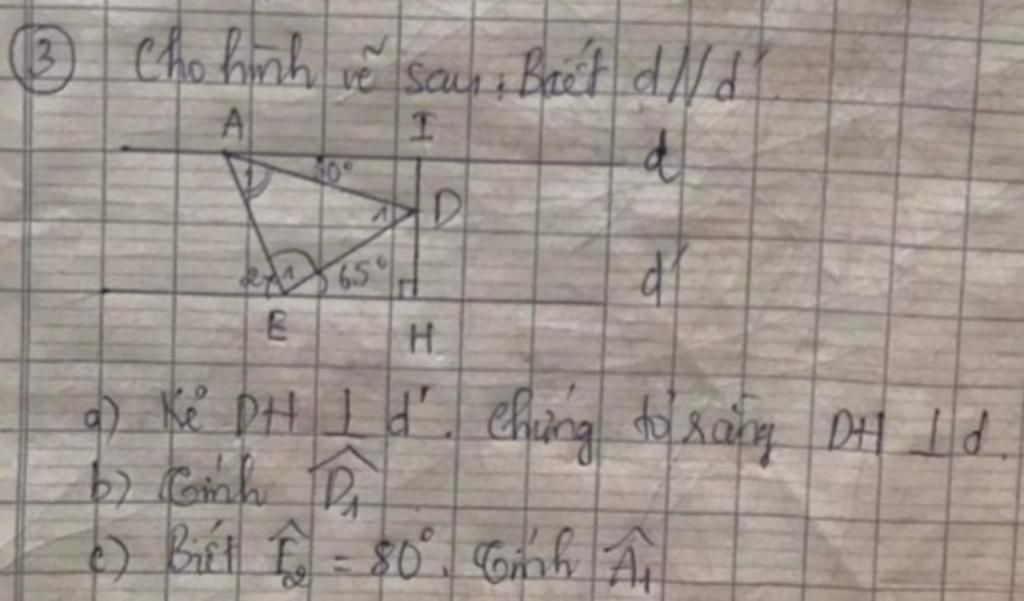 ③ Cho hình vẽ sau; Biết d//d'
A I d
1
1 D
2 1 65° d'
E H
a) Kẻ DH ⊥ d'. Chứng tỏ rằng DH ⊥ d.
b) Tính D̂₁
c) Biết Ê₂ = 80°. Tính Â₁